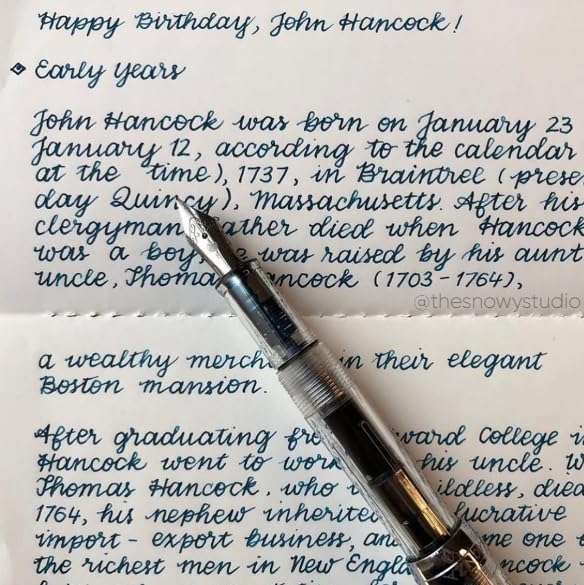 Happy Birthday, John Hancock!
Early Years
John Hancock was born on January 23
January 12, according to the calendar
at the time), 1737, in Braintrel (prese
day Quincy), Massachusetts. After his
clergyman ather died when Hancock
was a boy, was raised by his aunt
uncle, Thomas ancock (1703-1764),
@thesnowystudio
a wealthy merch in their elegant
Boston mansion.
After graduating fro vard College i
Hancock went to work his uncle. W
Thomas Hancock, who ildless, died
1764, his nephew inherite lucrative
import-export business, an ne one
the richest men in New Engla